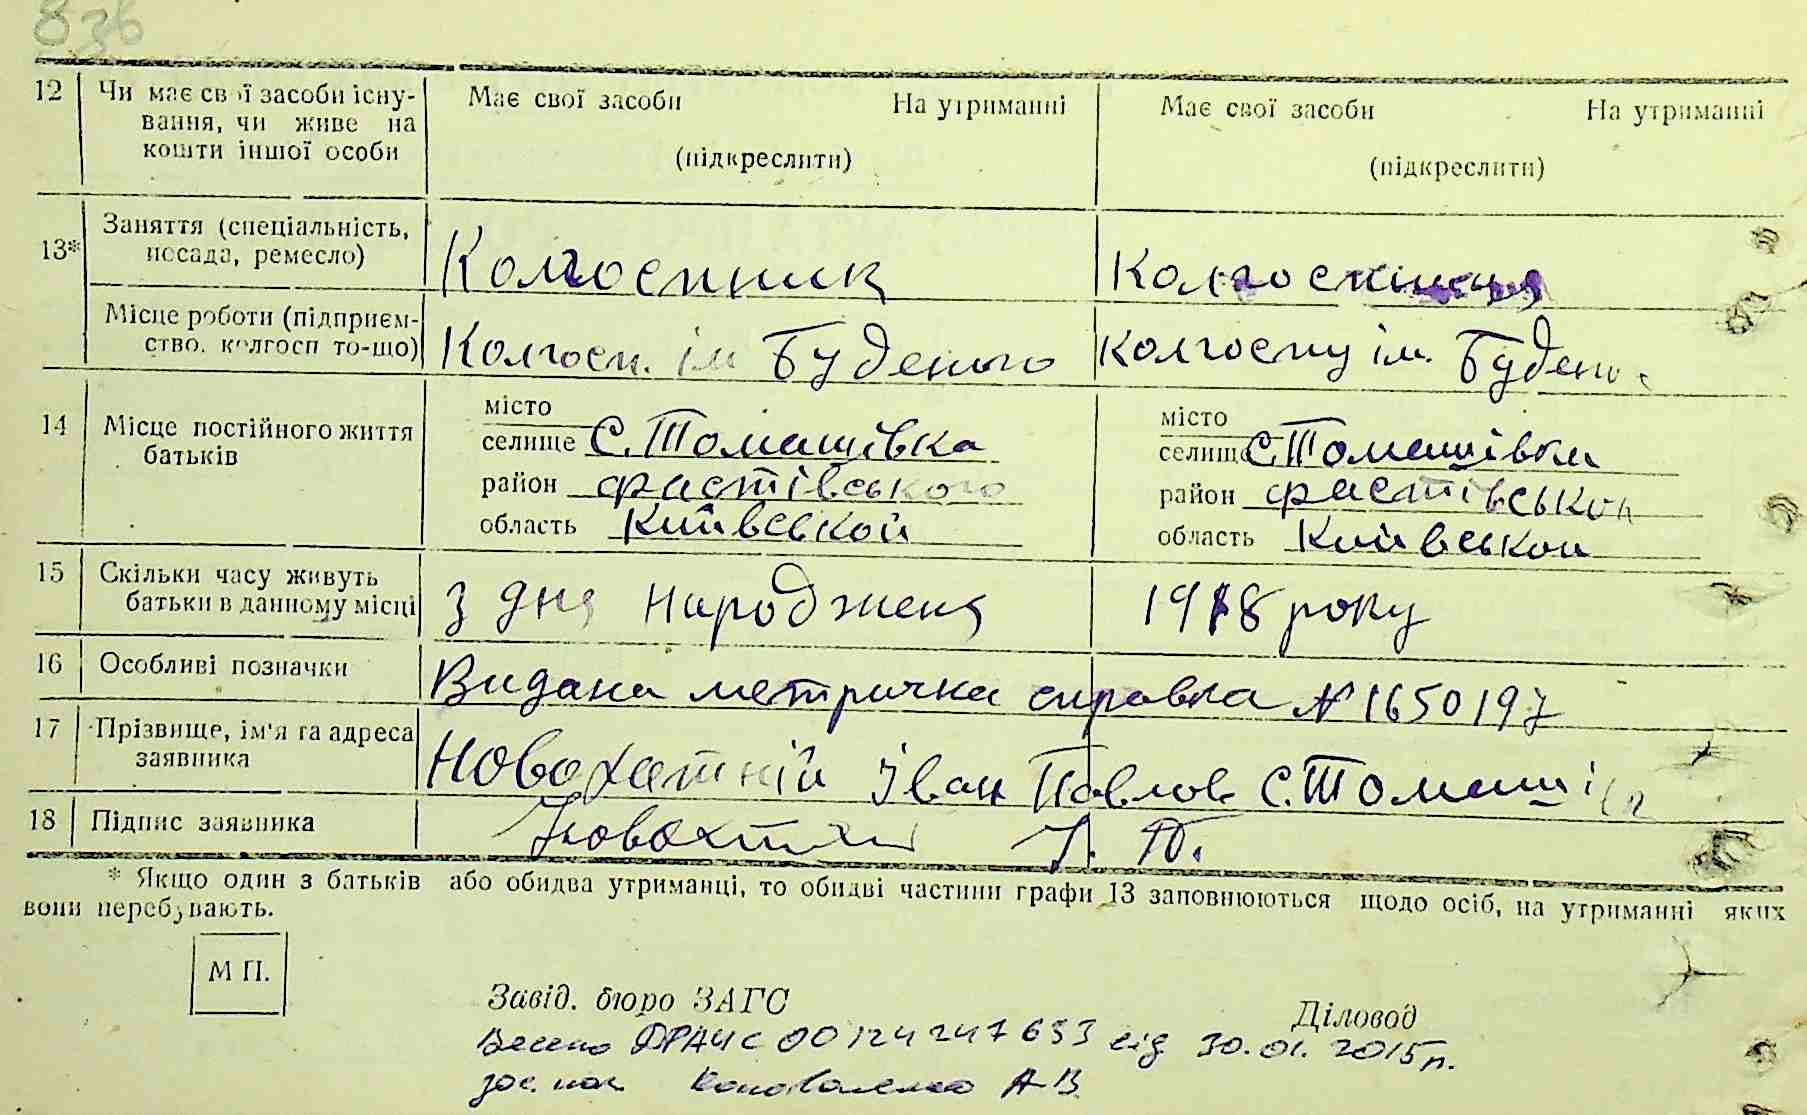 836
12 Чи має свої засоби існу- Має свої засоби На утриманні Має свої засоби На утриманні
вання, чи живе на
кошти іншої особи (підкреслити) (підкреслити)
13* Заняття (спеціальність,
посада, ремесло) Колгоспник Колгоспниця
Місце роботи (підприєм-
ство, колгосп то-що) Колгосп. ім Буденого Колгоспу ім. Буден
14 Місце постійного життя
батьків
місто місто
селище С. Томашівка селище С. Томашівка
район фастівського район фастівсько
область Київської область Київської
15 Скільки часу живуть
батьки в данному місці З дня народженя 1918 року
16 Особливі позначки Видана метрична справка № 1650197
17 Прізвище, ім'я та адреса
заявника Новохатній Іван Павлов С. Томаші
18 Підпис заявника І. П.
* Якщо один з батьків або обидва утриманці, то обидві частини графи 13 заповнюються щодо осіб, на утриманні яких
вони перебувають.
М П.
Завід. бюро ЗАГС Діловод
Внесено ДРАЦС 00124247633 від 30.01.2015р.
Коноваленко А В